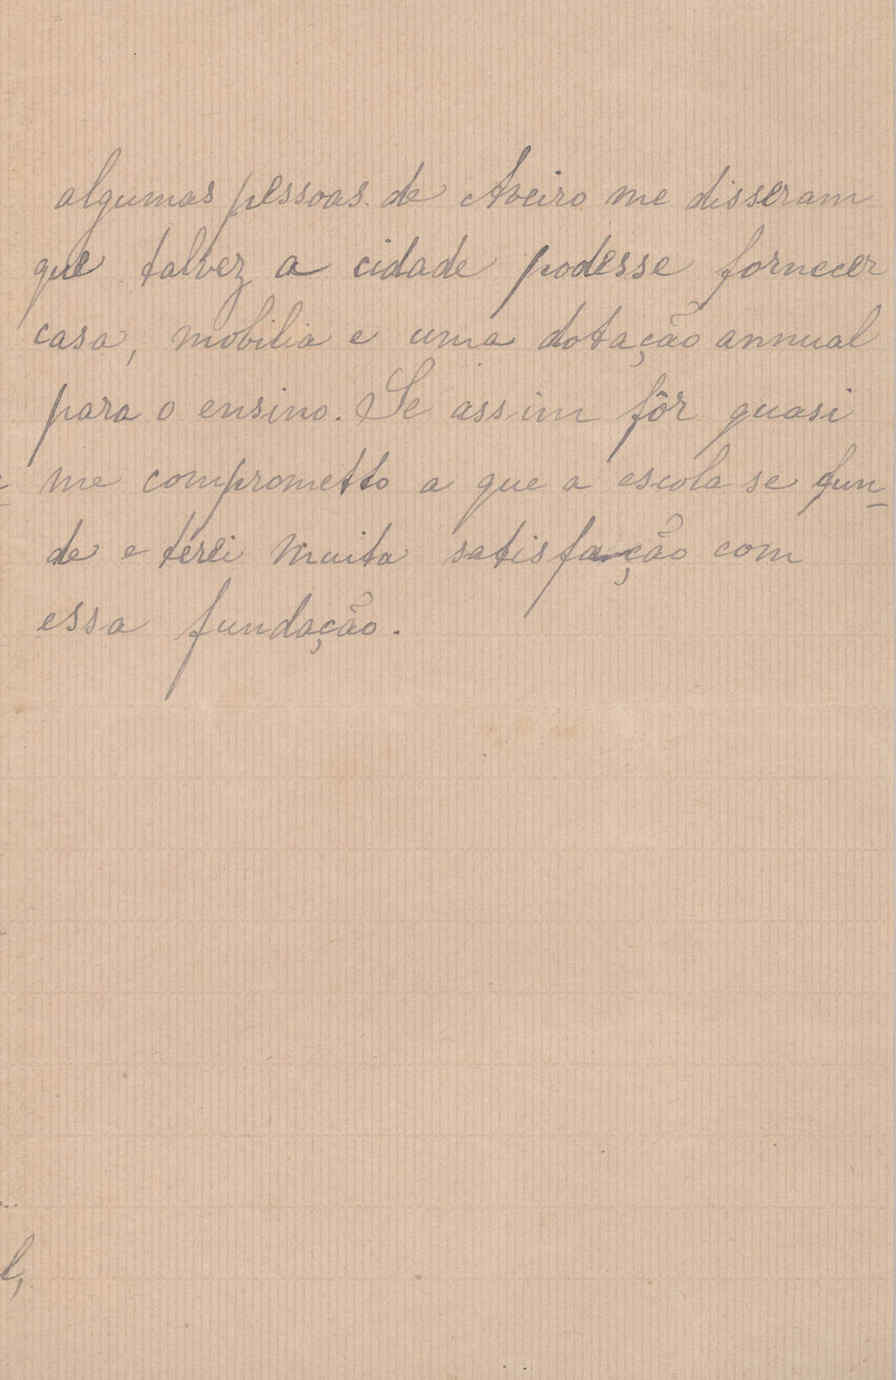 algumas pessoas de Aveiro me disseram
que talvez a cidade podesse fornecer
casa, mobilia e uma dotação annual
para o ensino. Se assim fôr quasi
me comprometto a que a escola se fun-
de e terei muita satisfação com
essa fundação.
l,